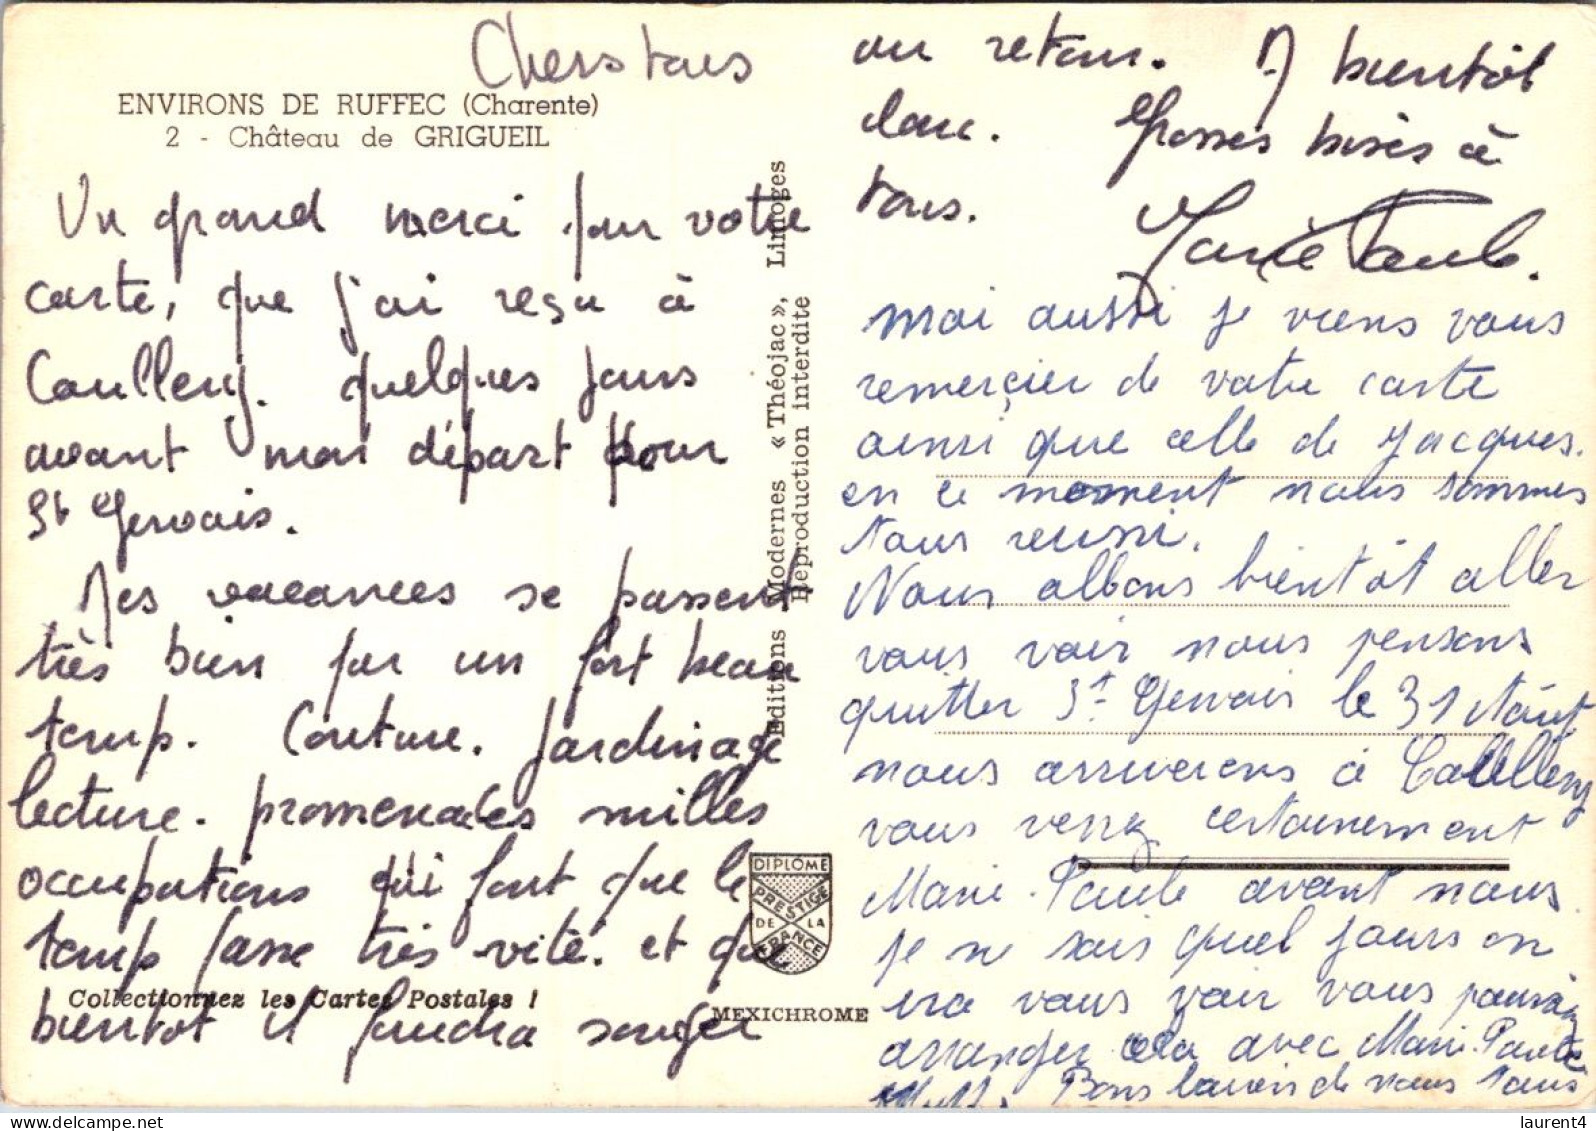 Chers tous
ENVIRONS DE RUFFEC (Charente)
2 - Château de GRIGUEIL
Un grand merci pour votre
carte, que j'ai reçu à
Caullery. quelques jours
avant mon départ pour
St Gervais.
Mes vacances se passent
très bien par un fort beau
temp. Couture. Jardinage
lecture. promenades milles
occupations qui font que le
temp passe très vite. et que
bientot il faudra songer
Collectionnez les Cartes Postales !
Editions Modernes « Théojac », Limoges
Reproduction interdite
DIPLÔME
PRESTIGE
DE LA
FRANCE
MEXICHROME
au retour. A bientôt
donc. Grosses bises à
tous.
Marie Paule.
moi aussi je viens vous
remerçier de votre carte
ainsi que celle de Jacques.
en ce moment nous sommes
tous reuni.
Nous allons bientôt aller
vous voir nous pensons
quitter St Gervais le 31 Août
nous arriverons à Caullery
vous verrez certainement
Marie-Paule avant nous
je ne sais quel jours on
ira vous voir vous pouvez
arranger cela avec Marie-Paule
Bons baisers de nous tous
laurent4